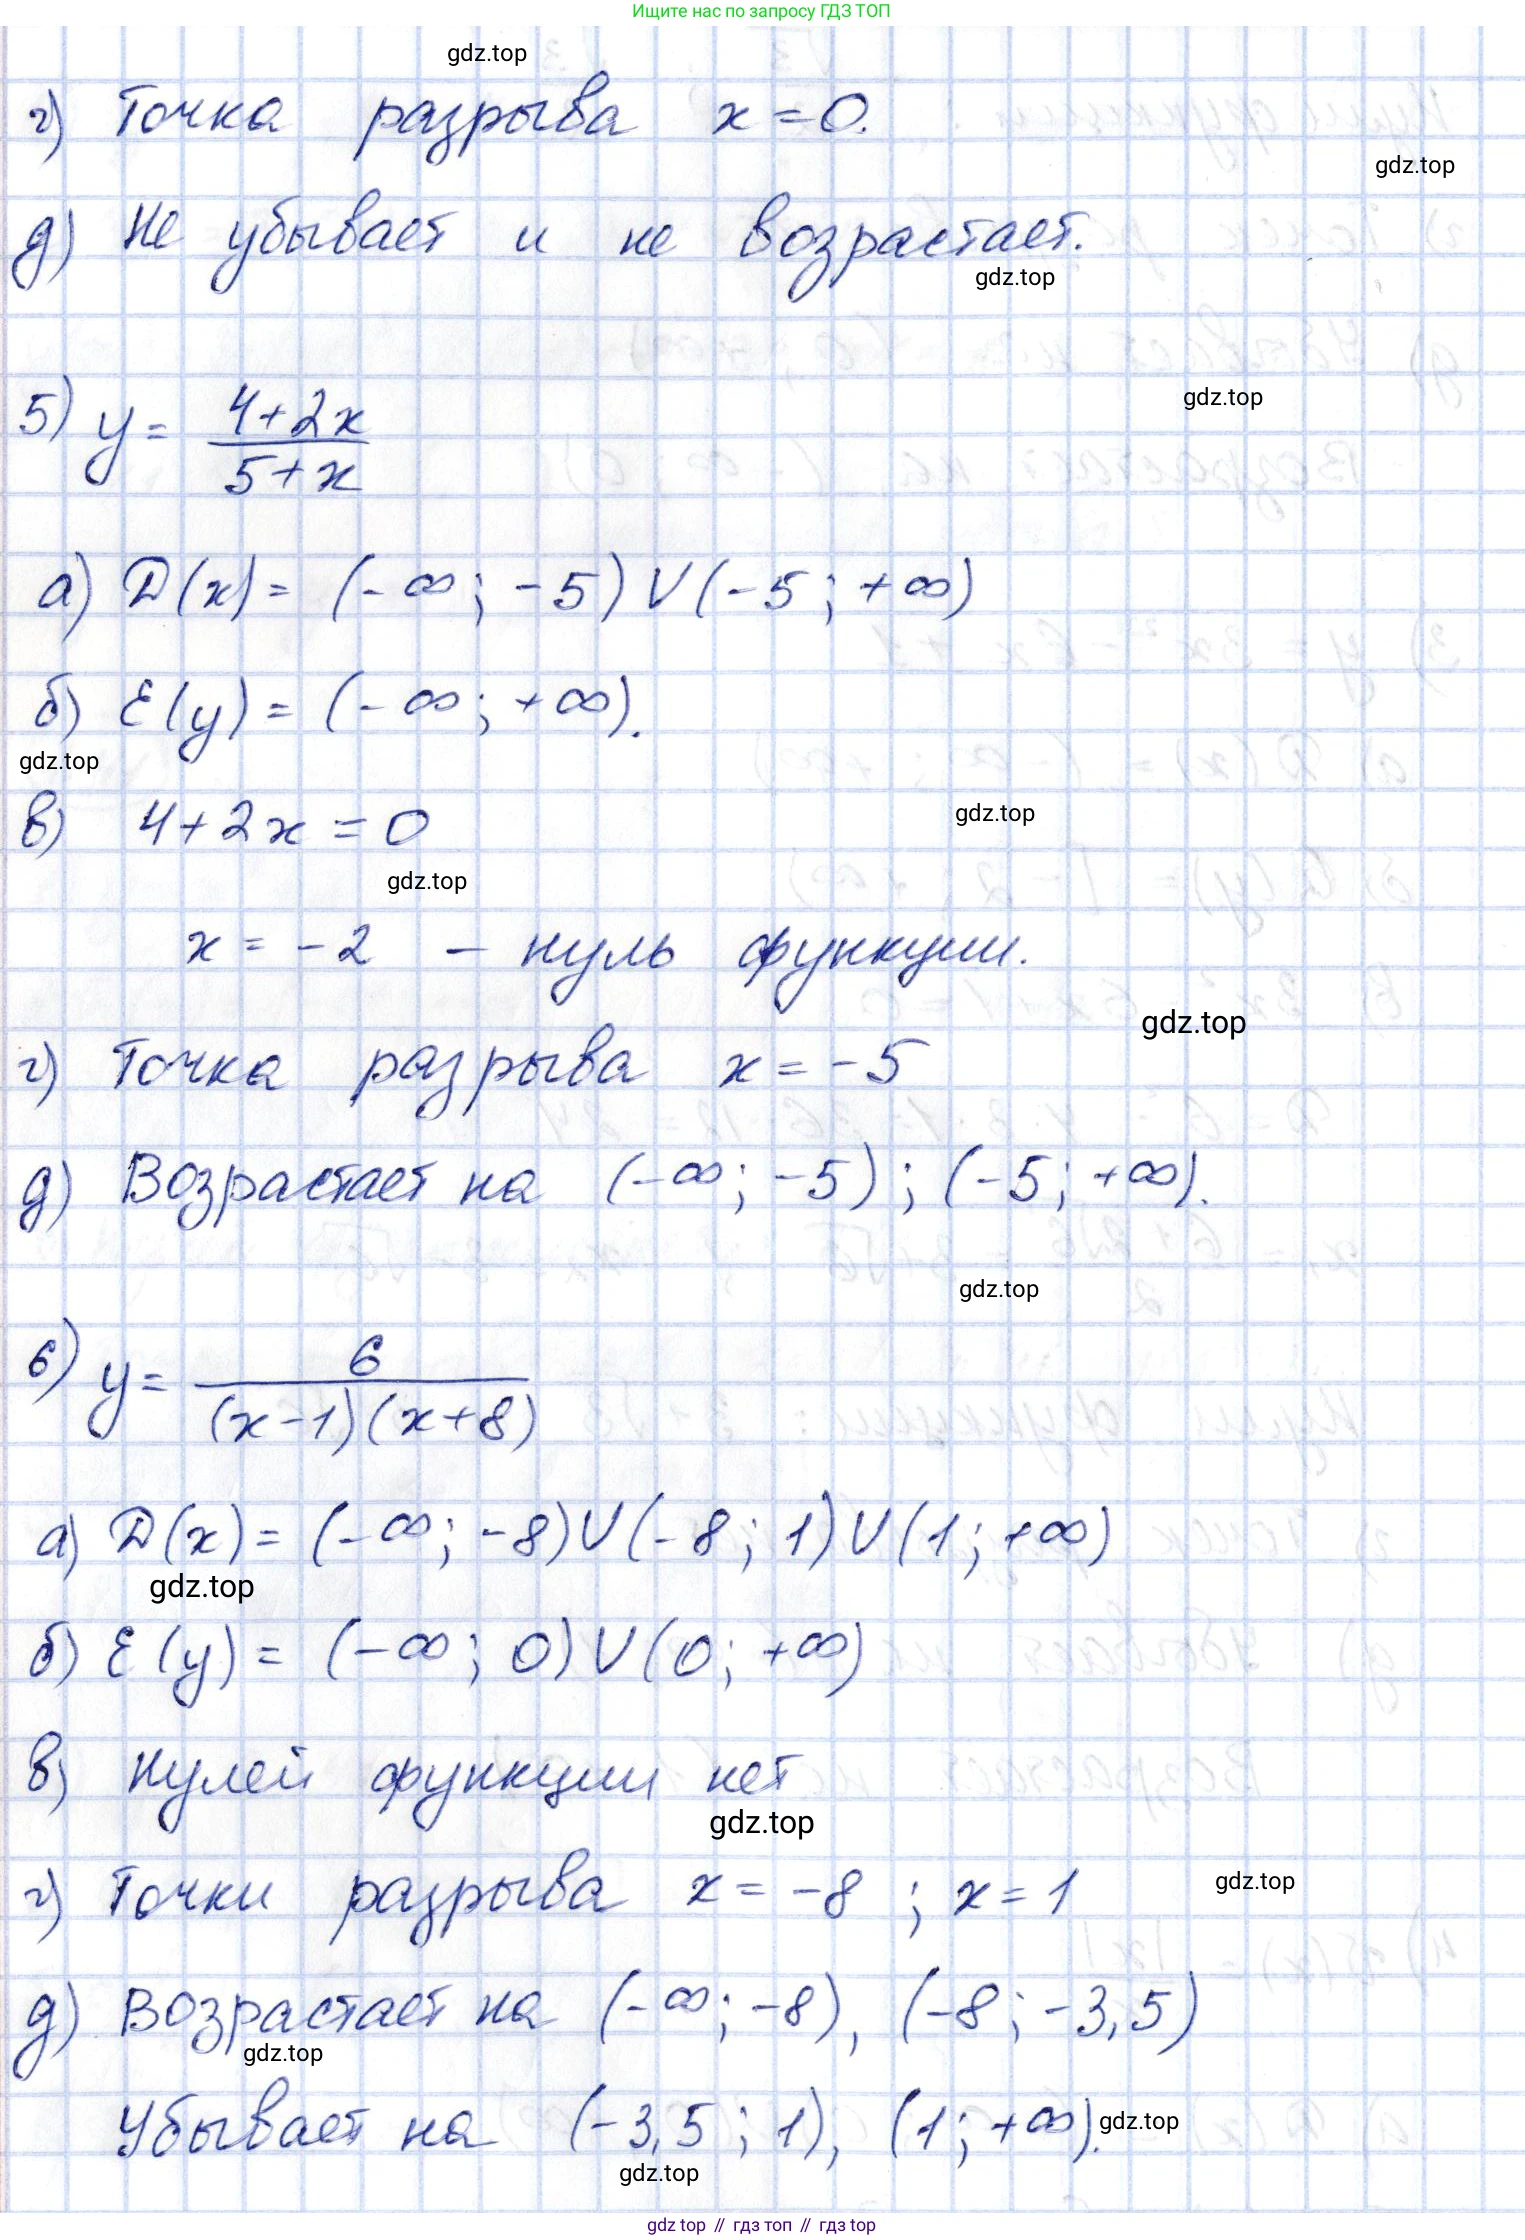 Ищите нас по запросу ГДЗ ТОП
gdz.top
г) Точка разрыва x = 0.
gdz.top
д) Не убывает и не возрастает.
gdz.top
gdz.top
5) y = (4+2x)/(5+x)
а) D(x) = (-∞; -5) ∪ (-5; +∞)
б) E(y) = (-∞; +∞).
gdz.top
в) 4 + 2x = 0
gdz.top
gdz.top
x = -2 – нуль функции.
gdz.top
г) Точка разрыва x = -5
д) Возрастает на (-∞; -5); (-5; +∞).
gdz.top
6) y = 6/((x-1)(x+8))
а) D(x) = (-∞; -8) ∪ (-8; 1) ∪ (1; +∞)
gdz.top
б) E(y) = (-∞; 0) ∪ (0; +∞)
в) Нулей функции нет
gdz.top
г) Точки разрыва x = -8; x = 1
gdz.top
д) Возрастает на (-∞; -8), (-8; -3,5)
gdz.top
Убывает на (-3,5; 1), (1; +∞).
gdz.top
gdz.top
gdz.top // гдз топ // гдз top